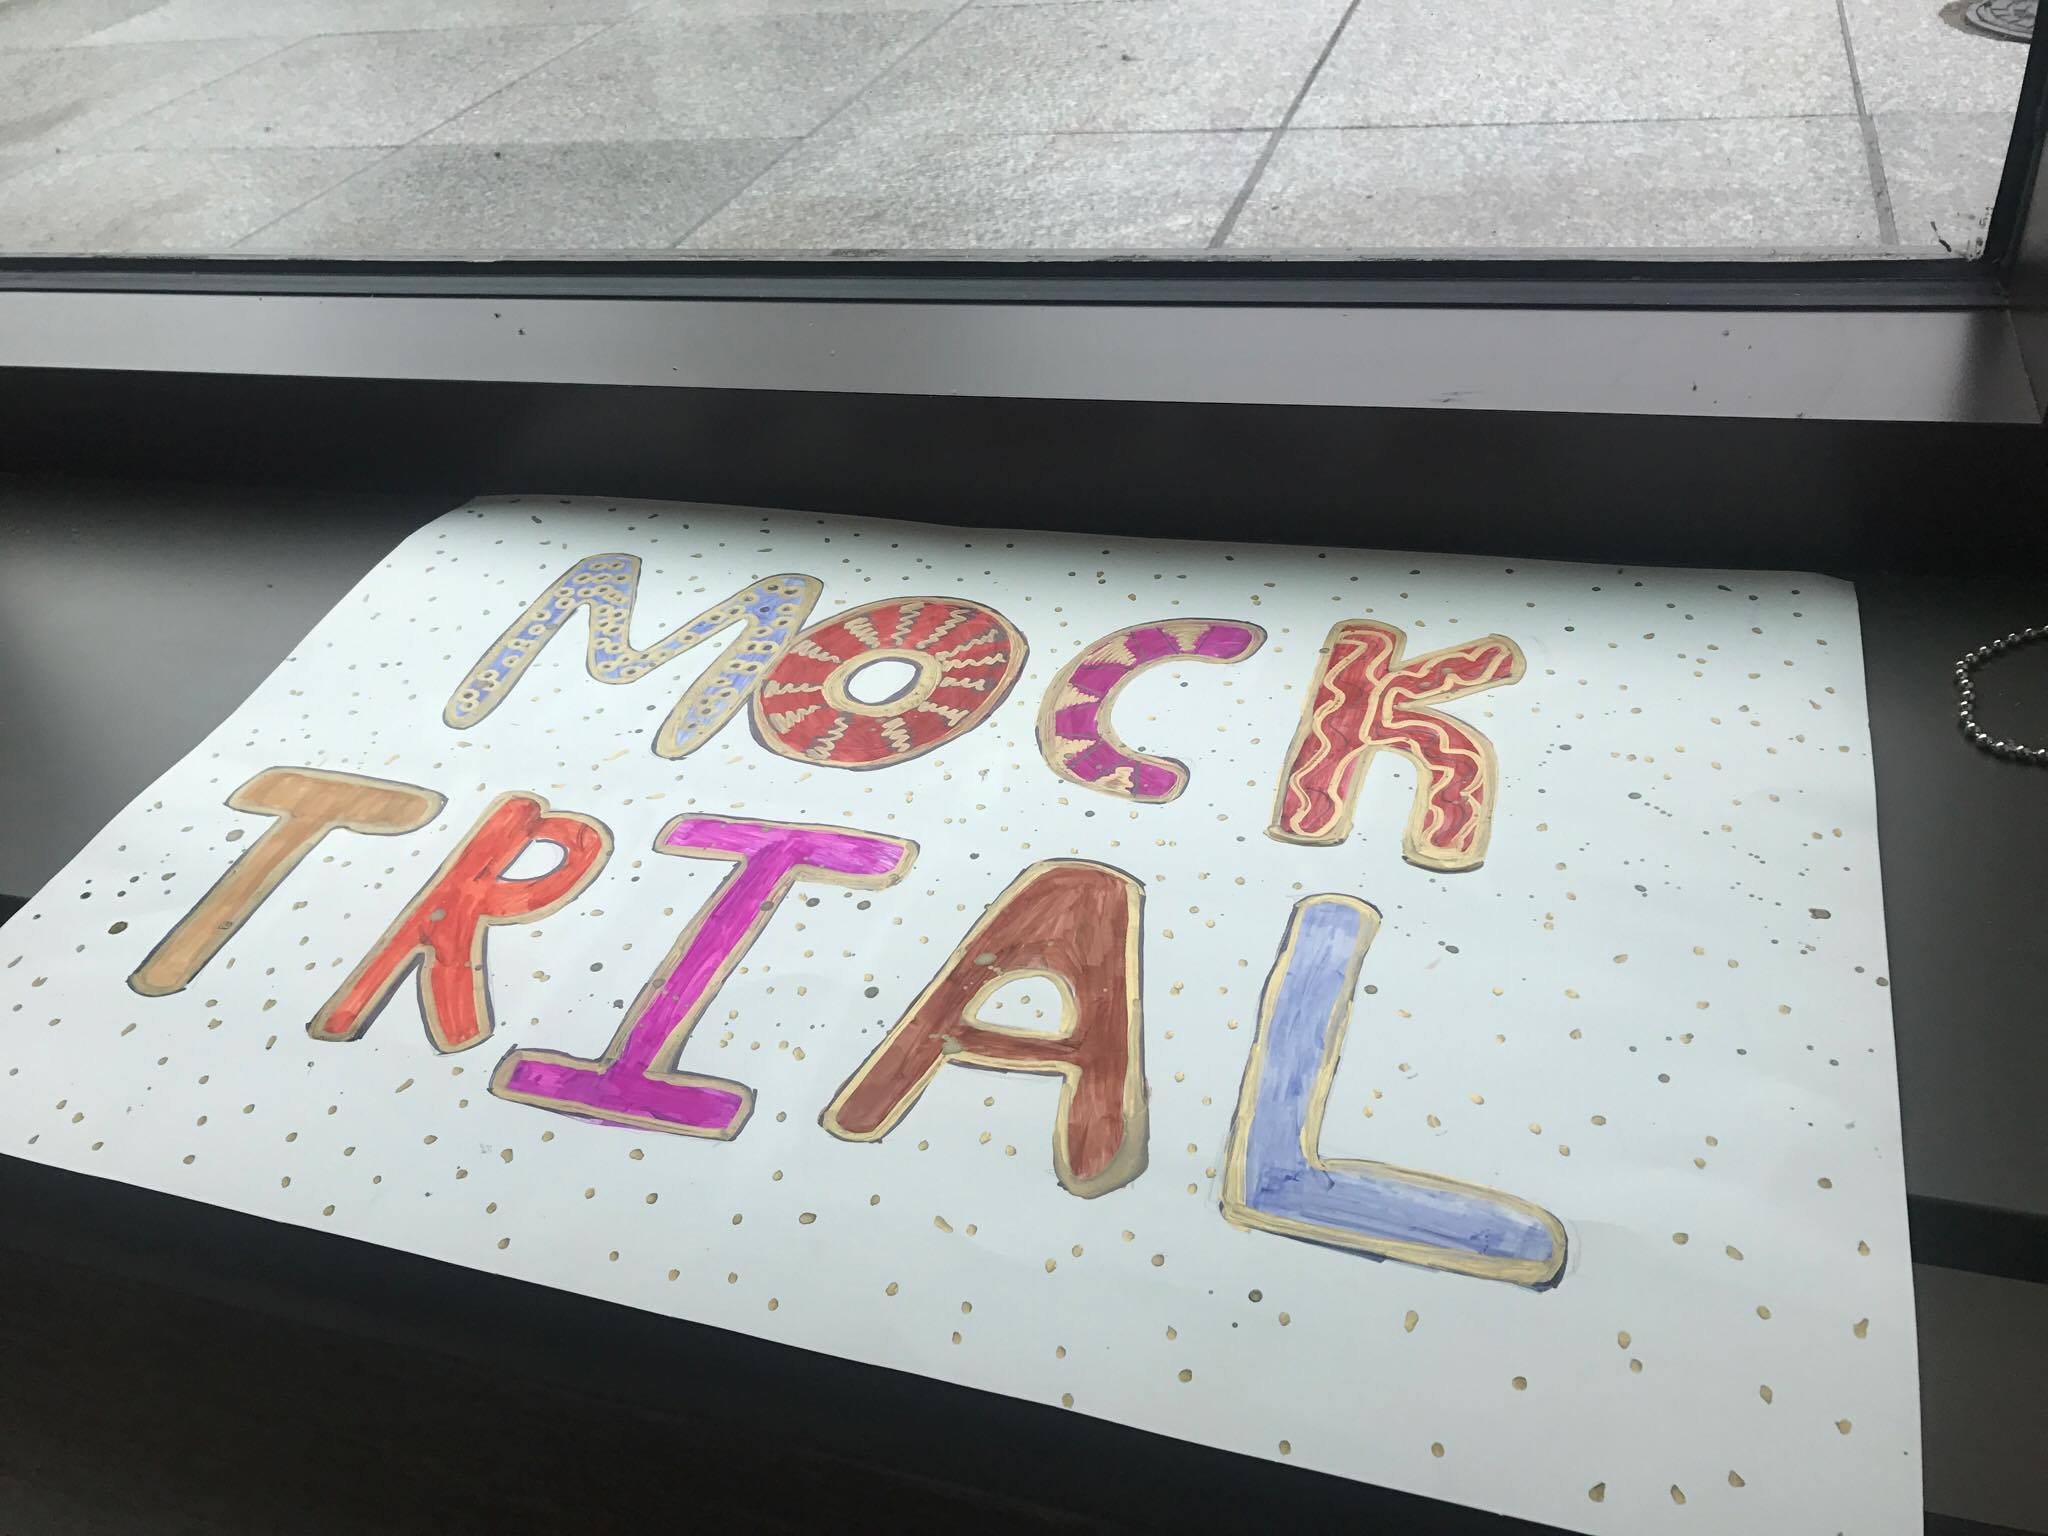 MOCK
TRIAL